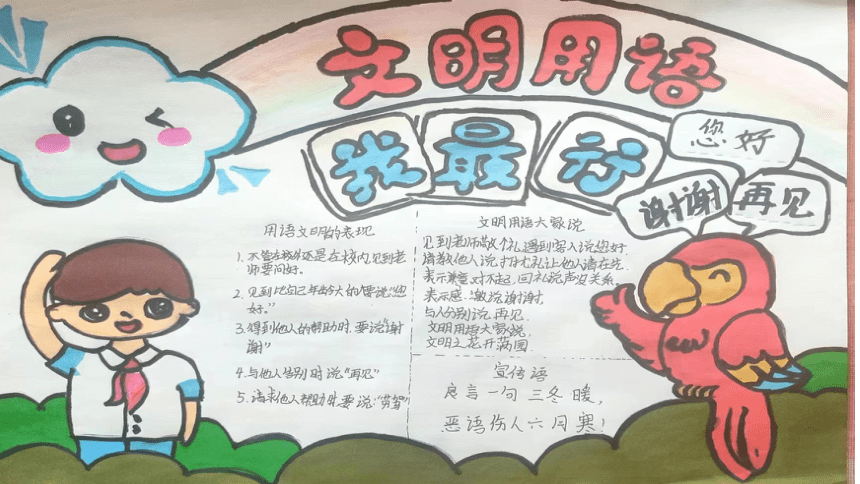 文明用语
我最行
您好
谢谢
再见
用语文明的表现
1、不管在校外还是在校内,见到老
师要问好。
2、见到比自己年龄大的要说“您
好。”
3、得到他人的帮助时,要说“谢
谢”
4、与他人告别时说“再见”
5、请求他人帮助时,要说:“劳驾”
文明用语大家说
见到老师敬个礼,遇到客人说您好.
请教他人说打扰,礼让他人请在先.
表示兼意,对不起,回礼说声没关系.
表示感激说谢谢.
与人分别说再见.
文明用语大家说.
文明之花开满园.
宣传语
良言一句三冬暖,
恶语伤人六月寒!